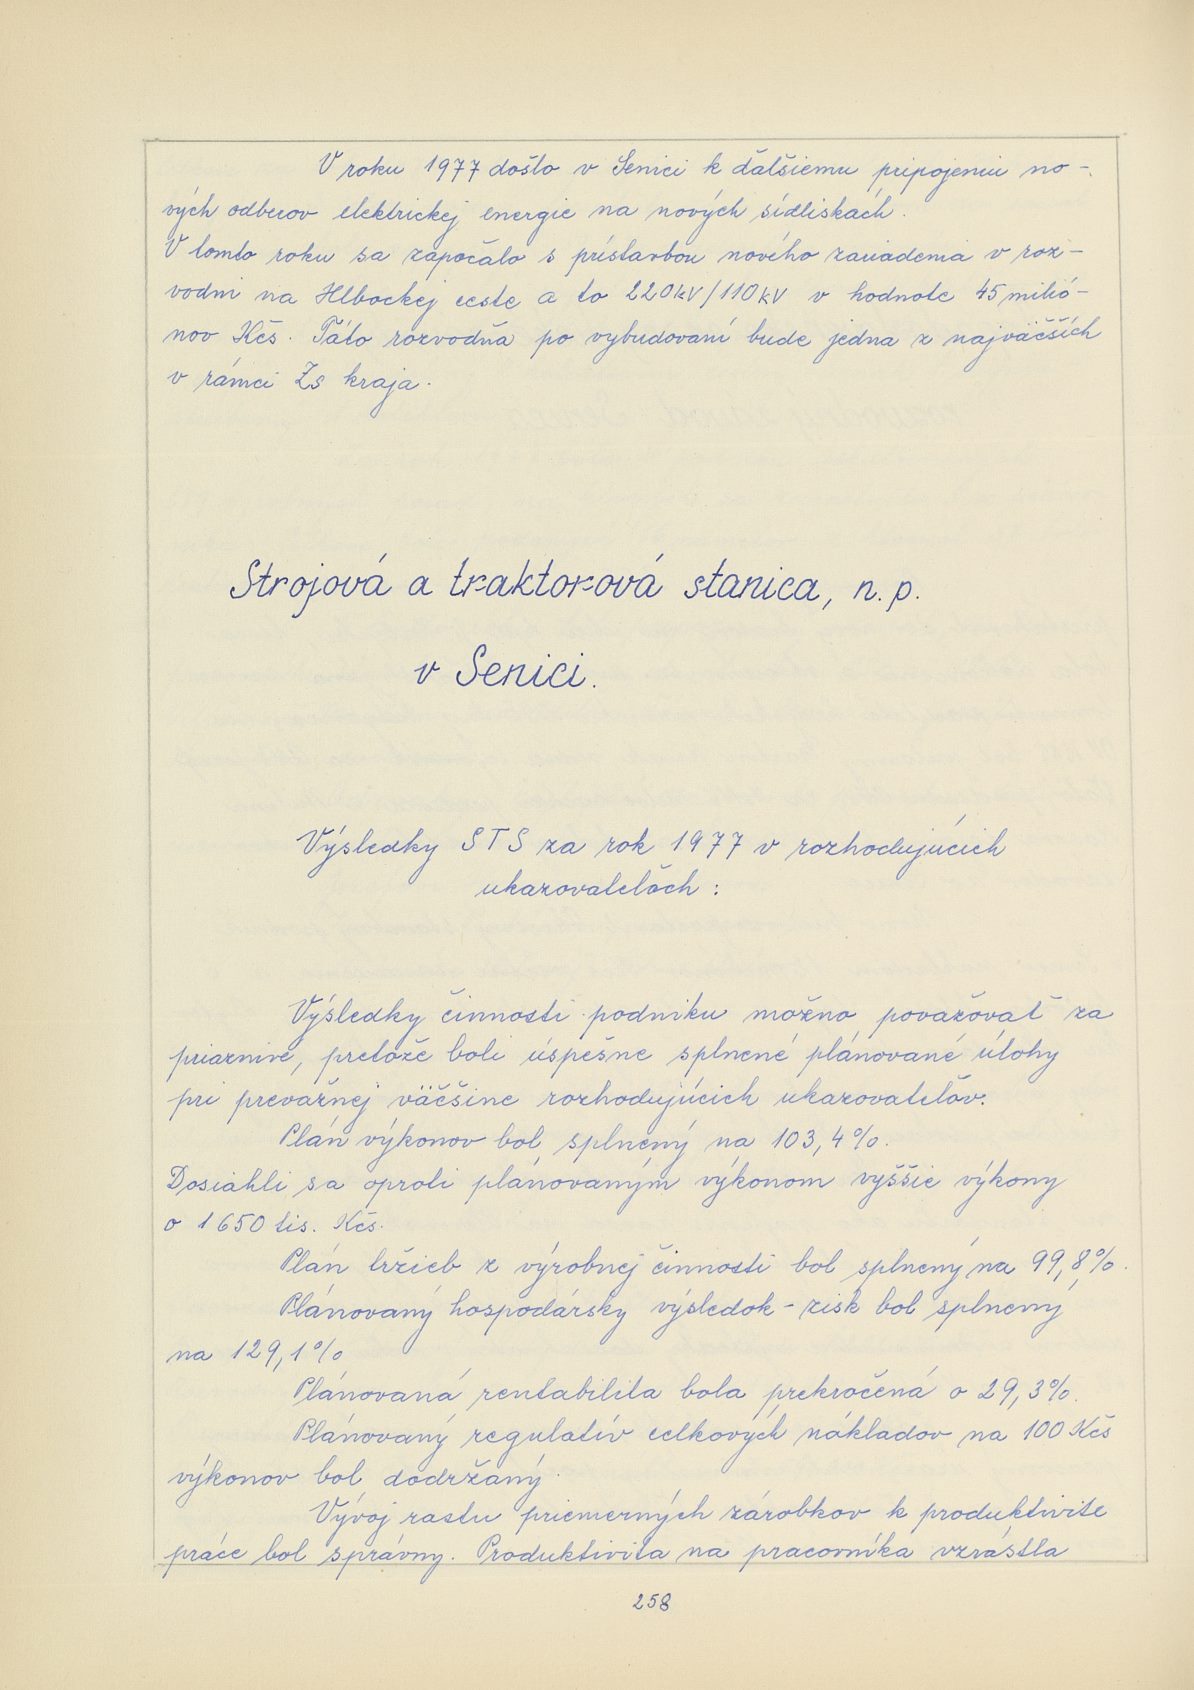 V roku 1977 došlo v Senici k ďalšiemu pripojeniu no-
vých odberov elektrickej energie na nových sídliskách.
V tomto roku sa započalo s prístavbou nového zariadenia v roz-
vodni na Hlbockej ceste a to 220kV/110kV v hodnote 45 milió-
nov Kčs. Táto rozvodňa po vybudovaní bude jedna z najväčších
v rámci Zs kraja.
Strojová a traktorová stanica, n.p.
v Senici.
Výsledky STS za rok 1977 v rozhodujúcich
ukazovateľoch:
Výsledky činnosti podniku možno považovať za
priaznivé, pretože boli úspešne splnené plánované úlohy
pri prevažnej väčšine rozhodujúcich ukazovateľov.
Plán výkonov bol splnený na 103,4%.
Dosiahli sa oproti plánovaným výkonom vyššie výkony
o 1650 tis. Kčs.
Plán tržieb z výrobnej činnosti bol splnený na 99,8%.
Plánovaný hospodársky výsledok - zisk bol splnený
na 129,1%
Plánovaná rentabilita bola prekročená o 29,3%.
Plánovaný regulatív celkových nákladov na 100 Kčs
výkonov bol dodržaný.
Vývoj rastu priemerných zárobkov k produktivite
práce bol správny. Produktivita na pracovníka vzrástla
258